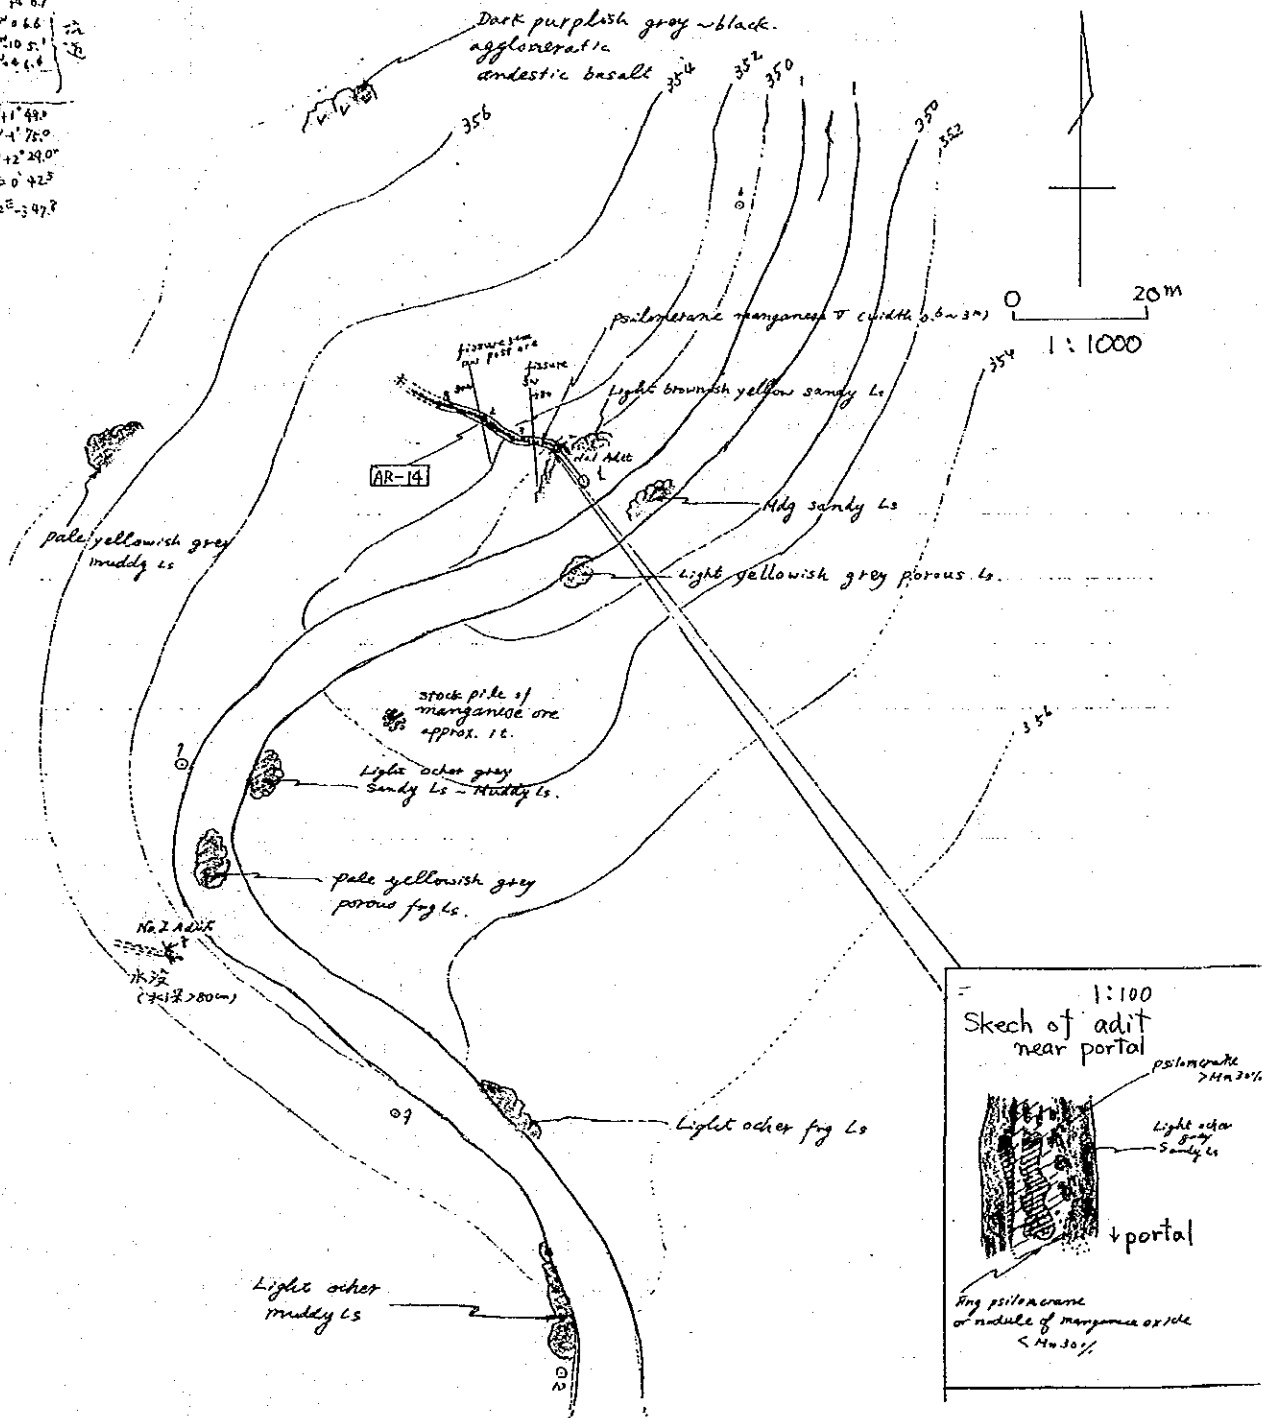 Dark purplish grey ~ black.
agglomeratic
andestic basalt
356
354
352
350
350
352
0 20m
1:1000
psilomerane manganese
(width 0.5 ~ 3m)
fissure
fissure
Light brownish yellow sandy Ls
No.1 Adit
354
AR-14
Mdg sandy Ls
pale yellowish grey
muddy Ls
Light yellowish grey porous Ls.
stock pile of
manganese ore
approx. 1t.
356
Light ocher grey
Sandy Ls ~ Muddy Ls.
pale yellowish grey
porous frg Ls.
No.2 Adit
水没
(水深>80cm)
Light ocher frg Ls
Light ocher
muddy Ls
1:100
Skech of adit
near portal
psilomerane
>Mn 30%
Light ocher
grey
Sandy Ls
↓portal
psilomerane
or nodule of manganese oxide
<Mn 30%